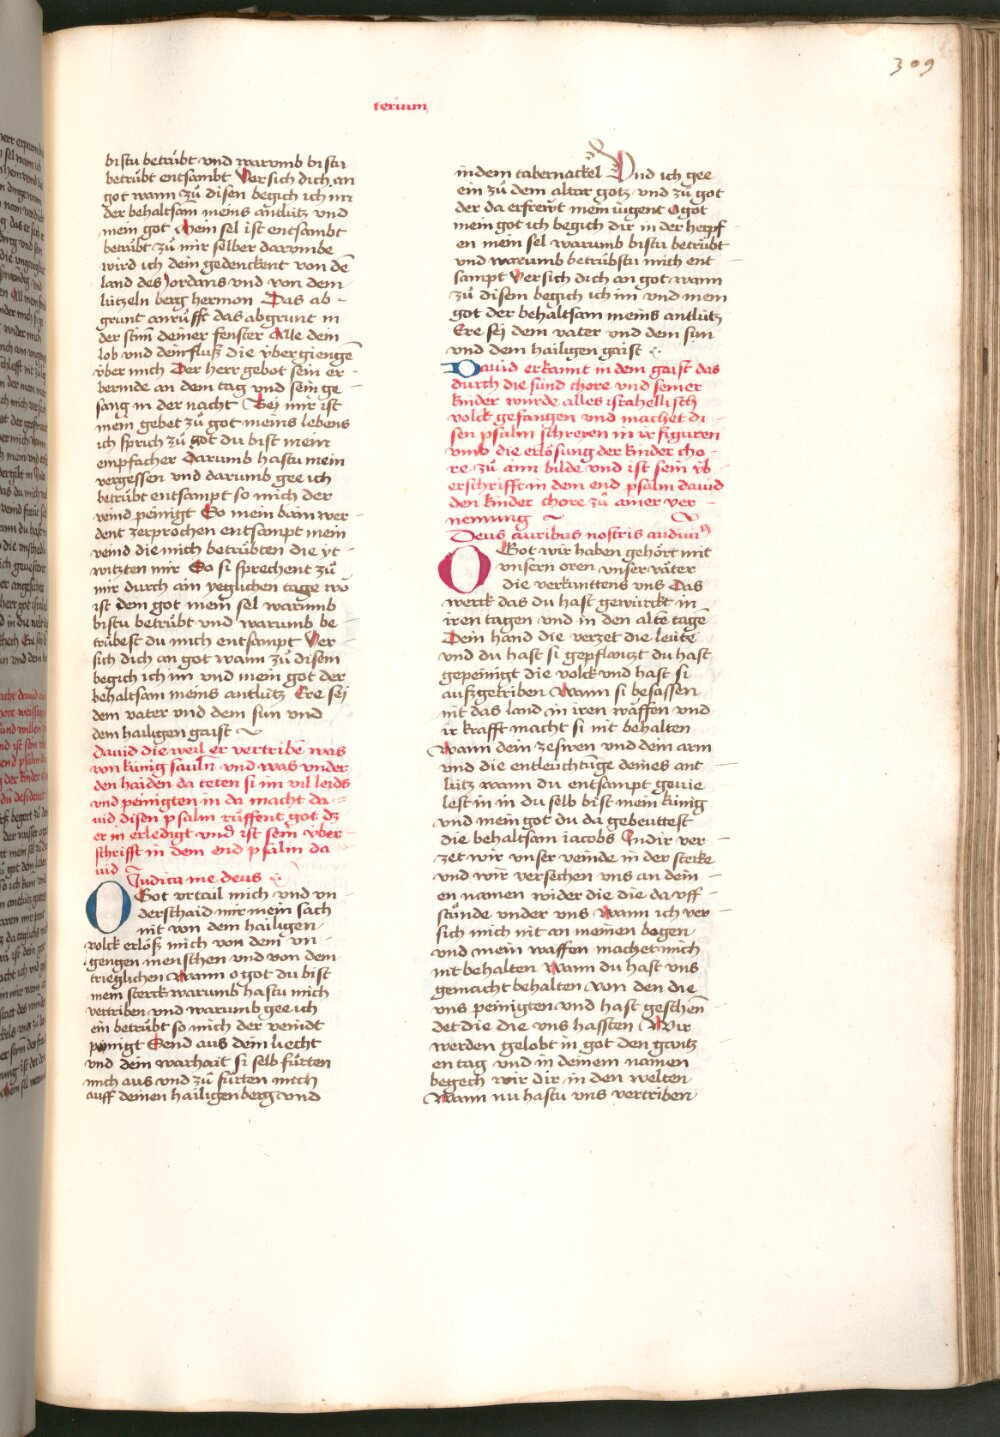 309
terium
bistu betrübt vnd warvmb bistu
betrübt entsambt Versich dich an
got wann zů disen begich ich im
der behaltsam meins antlütz vnd
mein got Mein sel ist entsambt
betrübt zů mir selber darvmbe
wird ich dein gedenckent von dē
land des Jordans vnd von dem
lützeln berg hermon Das ab
grunt anrüfft das abgrunt in
der stim deiner fenster Alle dein
lob vnd dein fluß die vbergiengē
vber mich Der herr gebot sein er
bermde an dem tag vnd sein ge
sang in der nacht Bej mir ist
mein gebet zů got meins lebens
ich sprich zů got du bist mein
empfacher Darumb hastu mein
vergessen vnd darumb gee ich
betrübt entsampt so mich der
veind peinigt So mein bain wer
dent zerprochen entsampt mein
veind die mich betrübten die yt
witzten mir So si sprechent zů
mir durch ain yeglichen tage wo
ist dem got mein sel warumb
bistu betrübt vnd warumb be
trübest du mich entsampt Ver
sich dich an got wann zů disem
begich ich im vnd mein got der
behaltsam meins antlütz Ere sej
dem vater vnd dem sun vnd
dem hailigen gaist
dauid die weil er vertribē was
von künig sauln vnd was vnder
den haiden da teten si im vil leids
vnd peinigten in da macht da
uid disen psalm rüffent got dz
er in erledigt vnd ist sein vber
schrifft in dem end psalm da
uid
Judica me deus
O Got vrtail mich vnd vn
derschaid mir mein sach
nit von dem hailigen
volck erlöß mich von dem vn
gengen menschen vnd von dem
trieglichen wann o got du bist
mein sterck warumb hastu mich
vertriben vnd warumb gee ich
ein betrübt so mich der veindt
peinigt Send aus dein liecht
vnd dein warhait si selb fürten
mich aus vnd zů fürten mich
auff deinen hailigen berg vnd
in dem tabernackel Vnd ich gee
ein zů dem altar gotz vnd zů got
der da erfrewt mein iugent O got
mein got ich begich dir in der herpf
en mein sel warumb bistu betrübt
vnd warumb betrübstu mich ent
sampt Versich dich an got wann
zů disem begich ich im vnd mein
got der behaltsam meins antlütz
Ere sej dem vater vnd dem sun
vnd dem hailigen gaist
Dauid erkannt in dem gaist das
durch die sünd chore vnd seiner
kinder wurde alles israhellisch
volck gefangen vnd machet di
sen psalm schreyen in ir figuren
vmb die erlösung der kinder cho
re zů aim bilde vnd ist sein vb
erschrifft in dem end psalm dauid
den kinder chore zů ainer ver
nemung
Deus auribus nostris audiui
O Got wir haben gehört mit
vnsern oren vnser väter
die verkunttens vns Das
werck das du hast gewürckt in
iren tagen vnd in den altē tagē
Dein hand die verzet die leute
vnd du hast si gepflantzt du hast
gepeinigt die volck vnd hast si
außgetriben Wann si besassen
nit das land in iren waffen vnd
ir krafft macht si nit behalten
Wann dein zesmen vnd dein arm
vnd die entleuchtüge deines ant
lütz wann du entsampt geuie
lest in in du selb bist mein künig
vnd mein got du da gebeuttest
die behaltsam iacobs In dir ver
zet wir vnser veinde in der sterke
vnd wir versechen vns an dein
en namen wider die die da vff
stůnde vnder vns Wann ich ver
sich mich nit an meinen bogen
vnd mein waffen machet mich
nit behalten Wann du hast vns
gemacht behalten von den die
vns peinigten vnd hast geschen
det die die vns hassten Wir
werden gelobt in got den gantz
en tag vnd in deinem namen
begech wir dir in den welten
Wann nu hastu vns vertriben